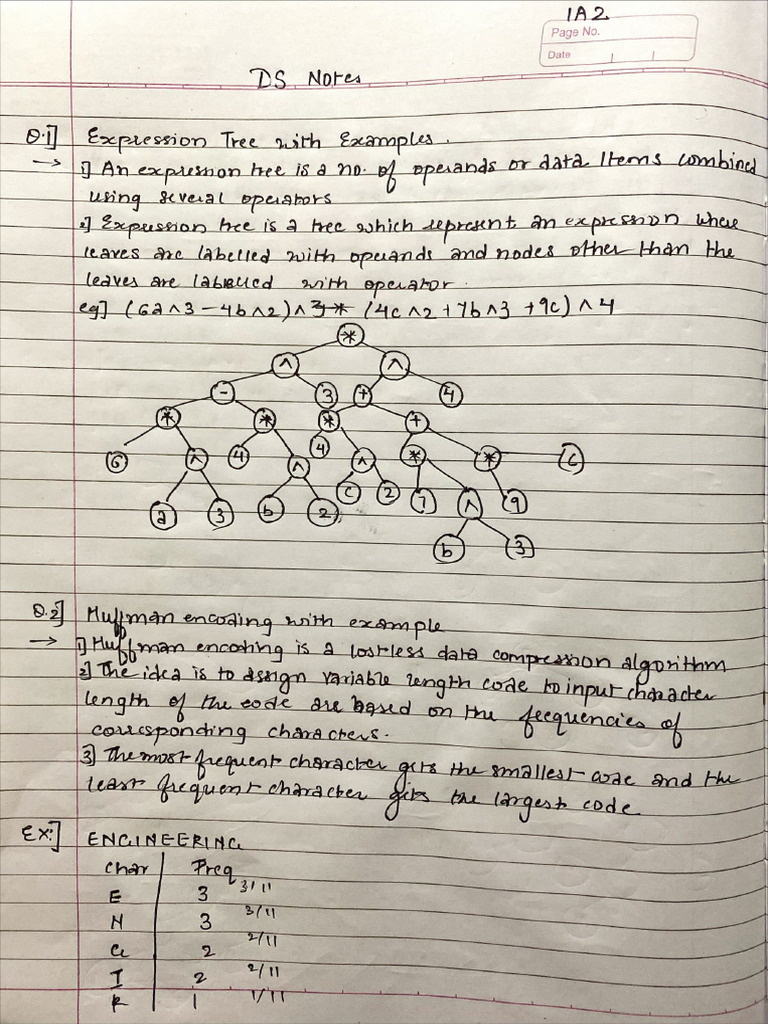 IA2
Page No.
Date
DS Notes
Q.1] Expression Tree with Examples.
→ 1] An expression tree is a no. of operands or data items combined
using several operators
2] Expression tree is a tree which represent an expression where
leaves are labelled with operands and nodes other than the
leaves are labelled with operator.
eg] (6a^3 - 4b^2)^3 * (4c^2 + 7b^3 + 9c)^4
*
^ ^
- 3 + 4
* * * +
6 ^ 4 ^ 4 ^ * * c
a 3 b 2 c 2 7 ^ 9
b 3
Q.2] Huffman encoding with example
→ 1] Huffman encoding is a lostless data compression algorithm
2] The idea is to assign variable length code to input character
length of the code are based on the frequencies of
corresponding characters.
3] The most frequent character gets the smallest code and the
least frequent character gits the largest code
Ex:] ENGINEERING
Char Freq
E 3 3/11
N 3 3/11
G 2 2/11
I 2 2/11
R 1 1/11